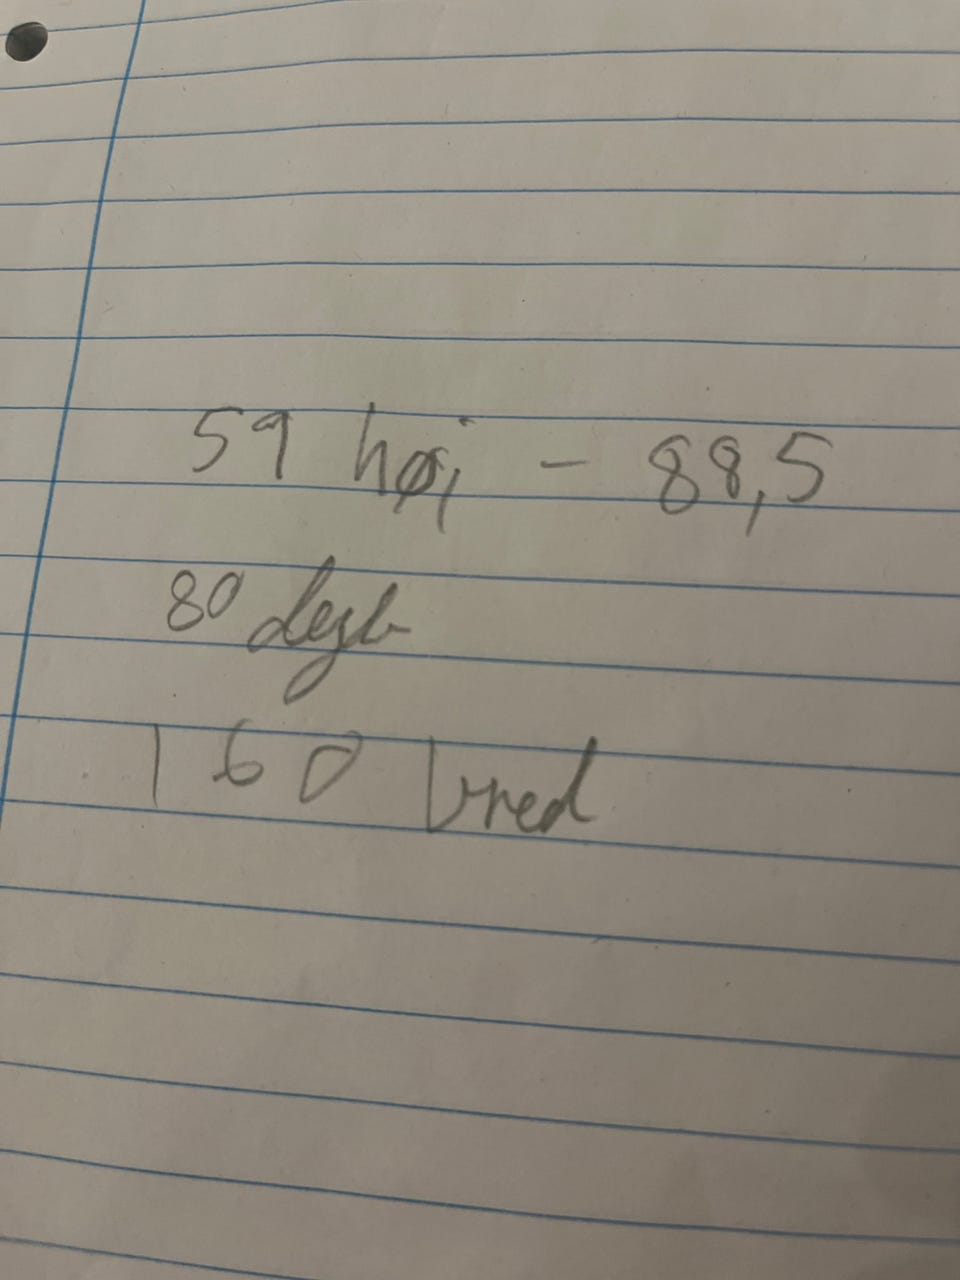 59 høj - 88,5
80 dyb
160 bred